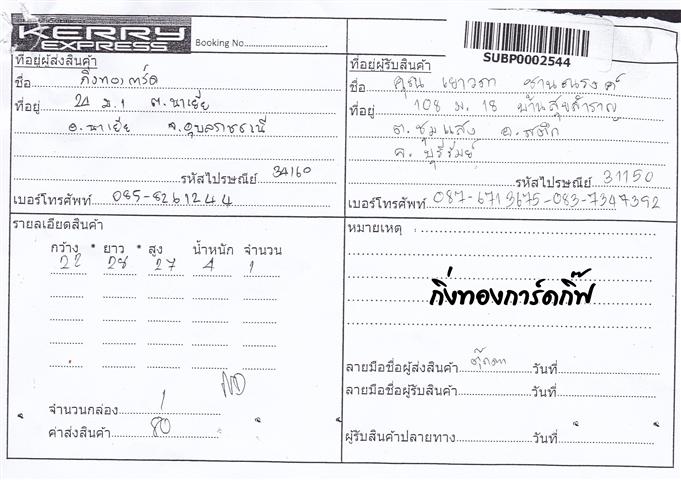 KERRY
EXPRESS
Booking No.
SUBP0002544
ที่อยู่ผู้ส่งสินค้า
ชื่อ กิ่งทองการ์ด
ที่อยู่ 21 ม.1 ต.นาเยีย
อ.นาเยีย จ.อุบลราชธานี
รหัสไปรษณีย์ 34160
เบอร์โทรศัพท์ 085-8261244
ที่อยู่ผู้รับสินค้า
ชื่อ คุณ เยาวภา ชาญณรงค์
ที่อยู่ 108 ม.18 บ้านสุขสำราญ
ต.ชุมแสง อ.สตึก
จ.บุรีรัมย์
รหัสไปรษณีย์ 31150
เบอร์โทรศัพท์ 087-6713675-083-7347392
รายละเอียดสินค้า
กว้าง * ยาว * สูง น้ำหนัก จำนวน
22 28 27 4 1
ND
จำนวนกล่อง 1
ค่าส่งสินค้า 80
หมายเหตุ :
กิ่งทองการ์ดกิ๊ฟ
ลายมือชื่อผู้ส่งสินค้า ตุ๊กตา วันที่
ลายมือชื่อผู้รับสินค้า วันที่
ผู้รับสินค้าปลายทาง วันที่